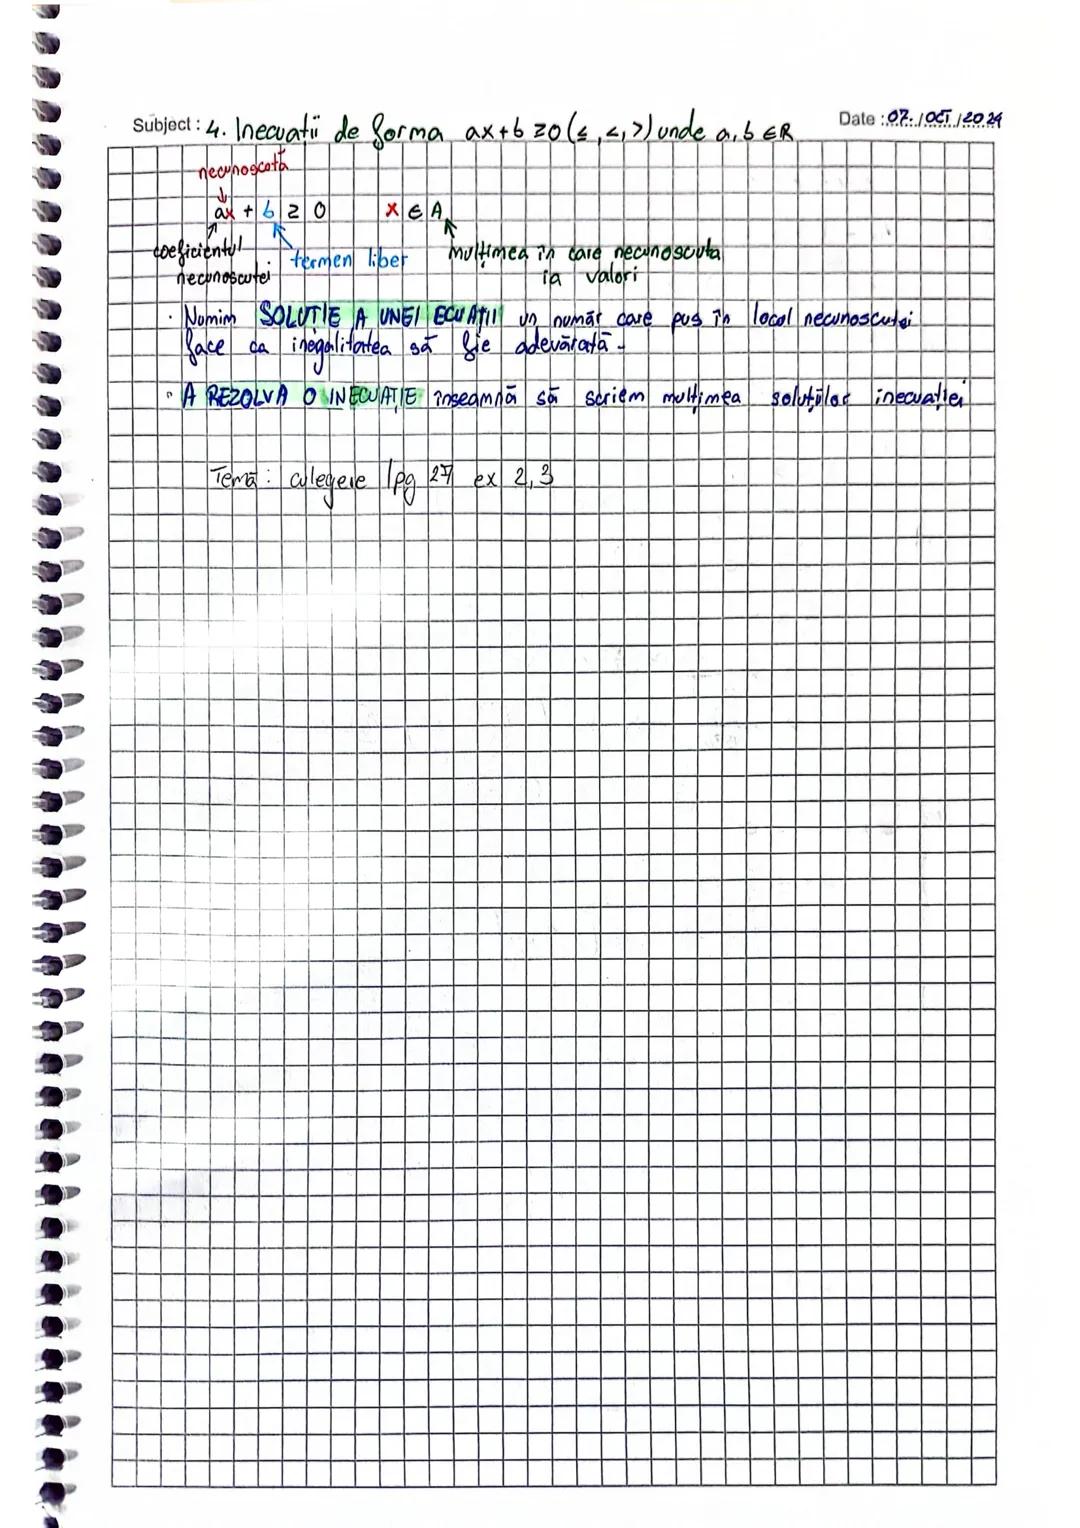 Subject: 4. Inecuații de forma ax+b ≥0 (≤, <, >) unde a, b ∈ R Date: 07./OCT/2024
necunoscota
ax + b ≥ 0 x ∈ A
coeficientul termen liber mulțimea în care necunoscuta
necunoscutei ia valori
· Numim SOLUȚIE A UNEI ECUAȚII un număr care pus în locol necunoscutei
face ca inegalitatea să fie adevărată.
· A REZOLVA O INECUAȚIE înseamnă să scriem mulțimea soluțiilor inecuației
Temă: culegere /pg 27 ex 2,3